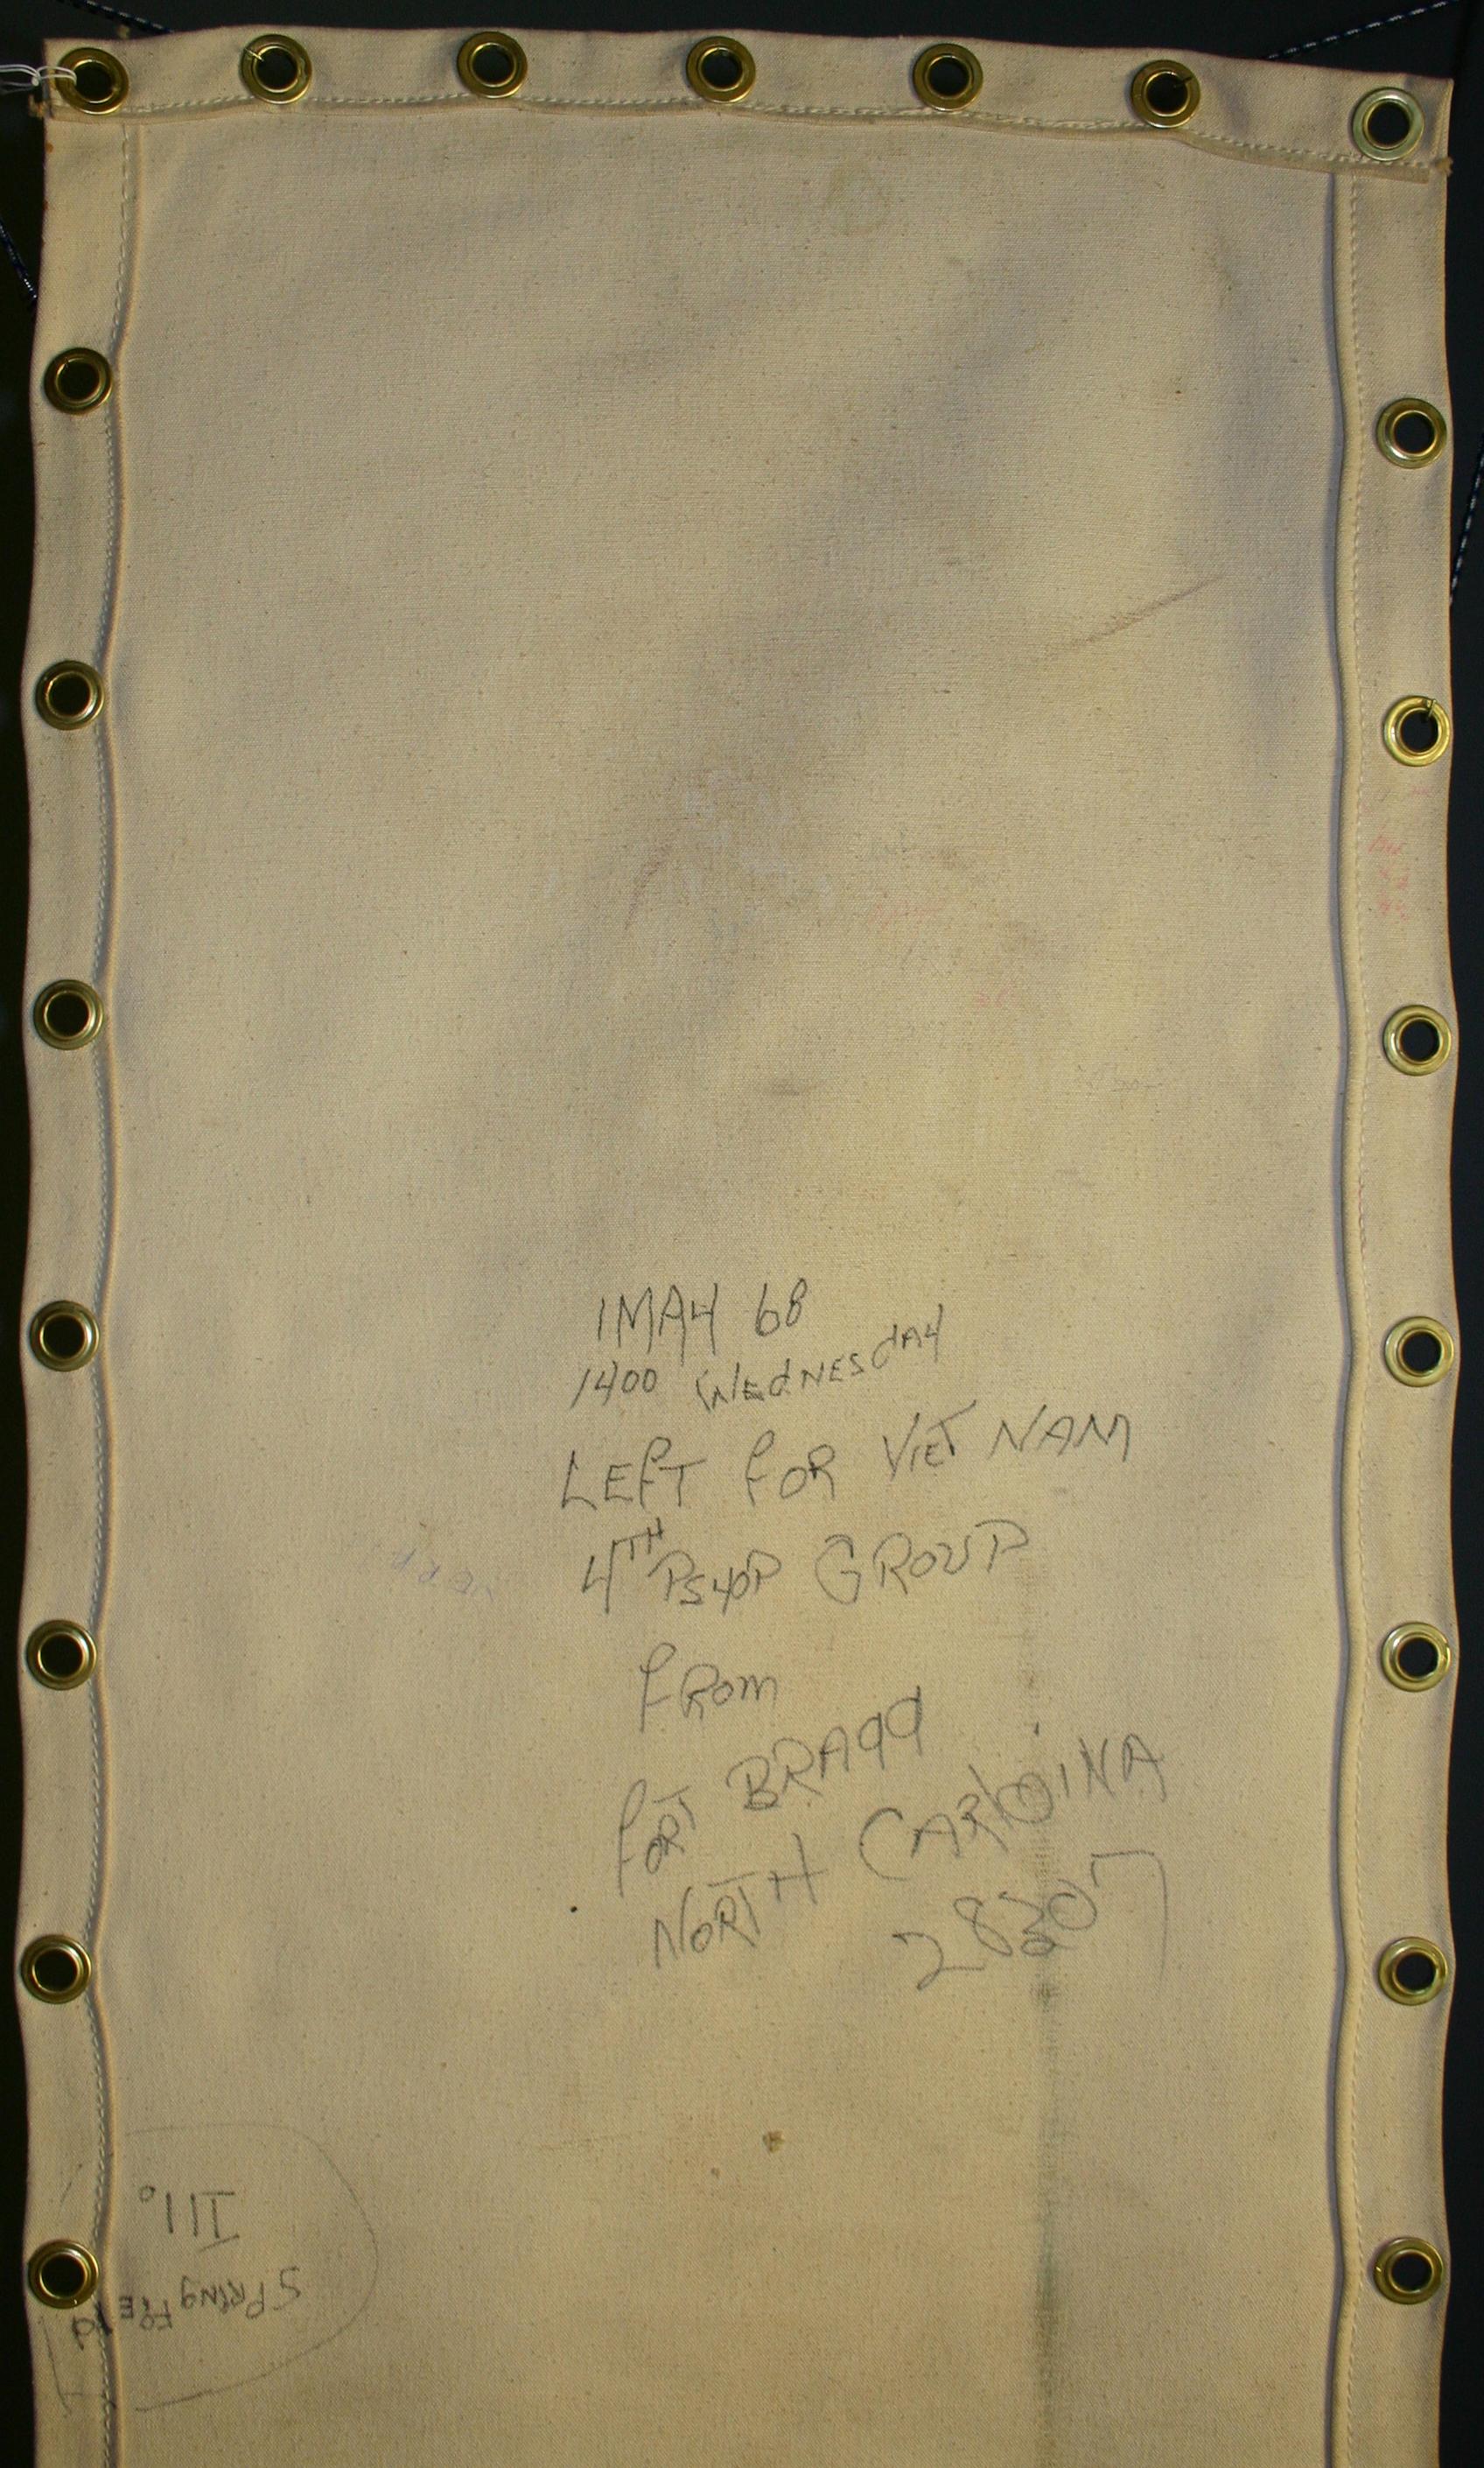 1 MAY 68
1400 WEdNESdAY
LEFT FOR VIET NAM
4TH PSYOP GROUP
FROM
FORT BRAgg
NORTH CARlOINA
28307
SPRINgFiEld
Ill.